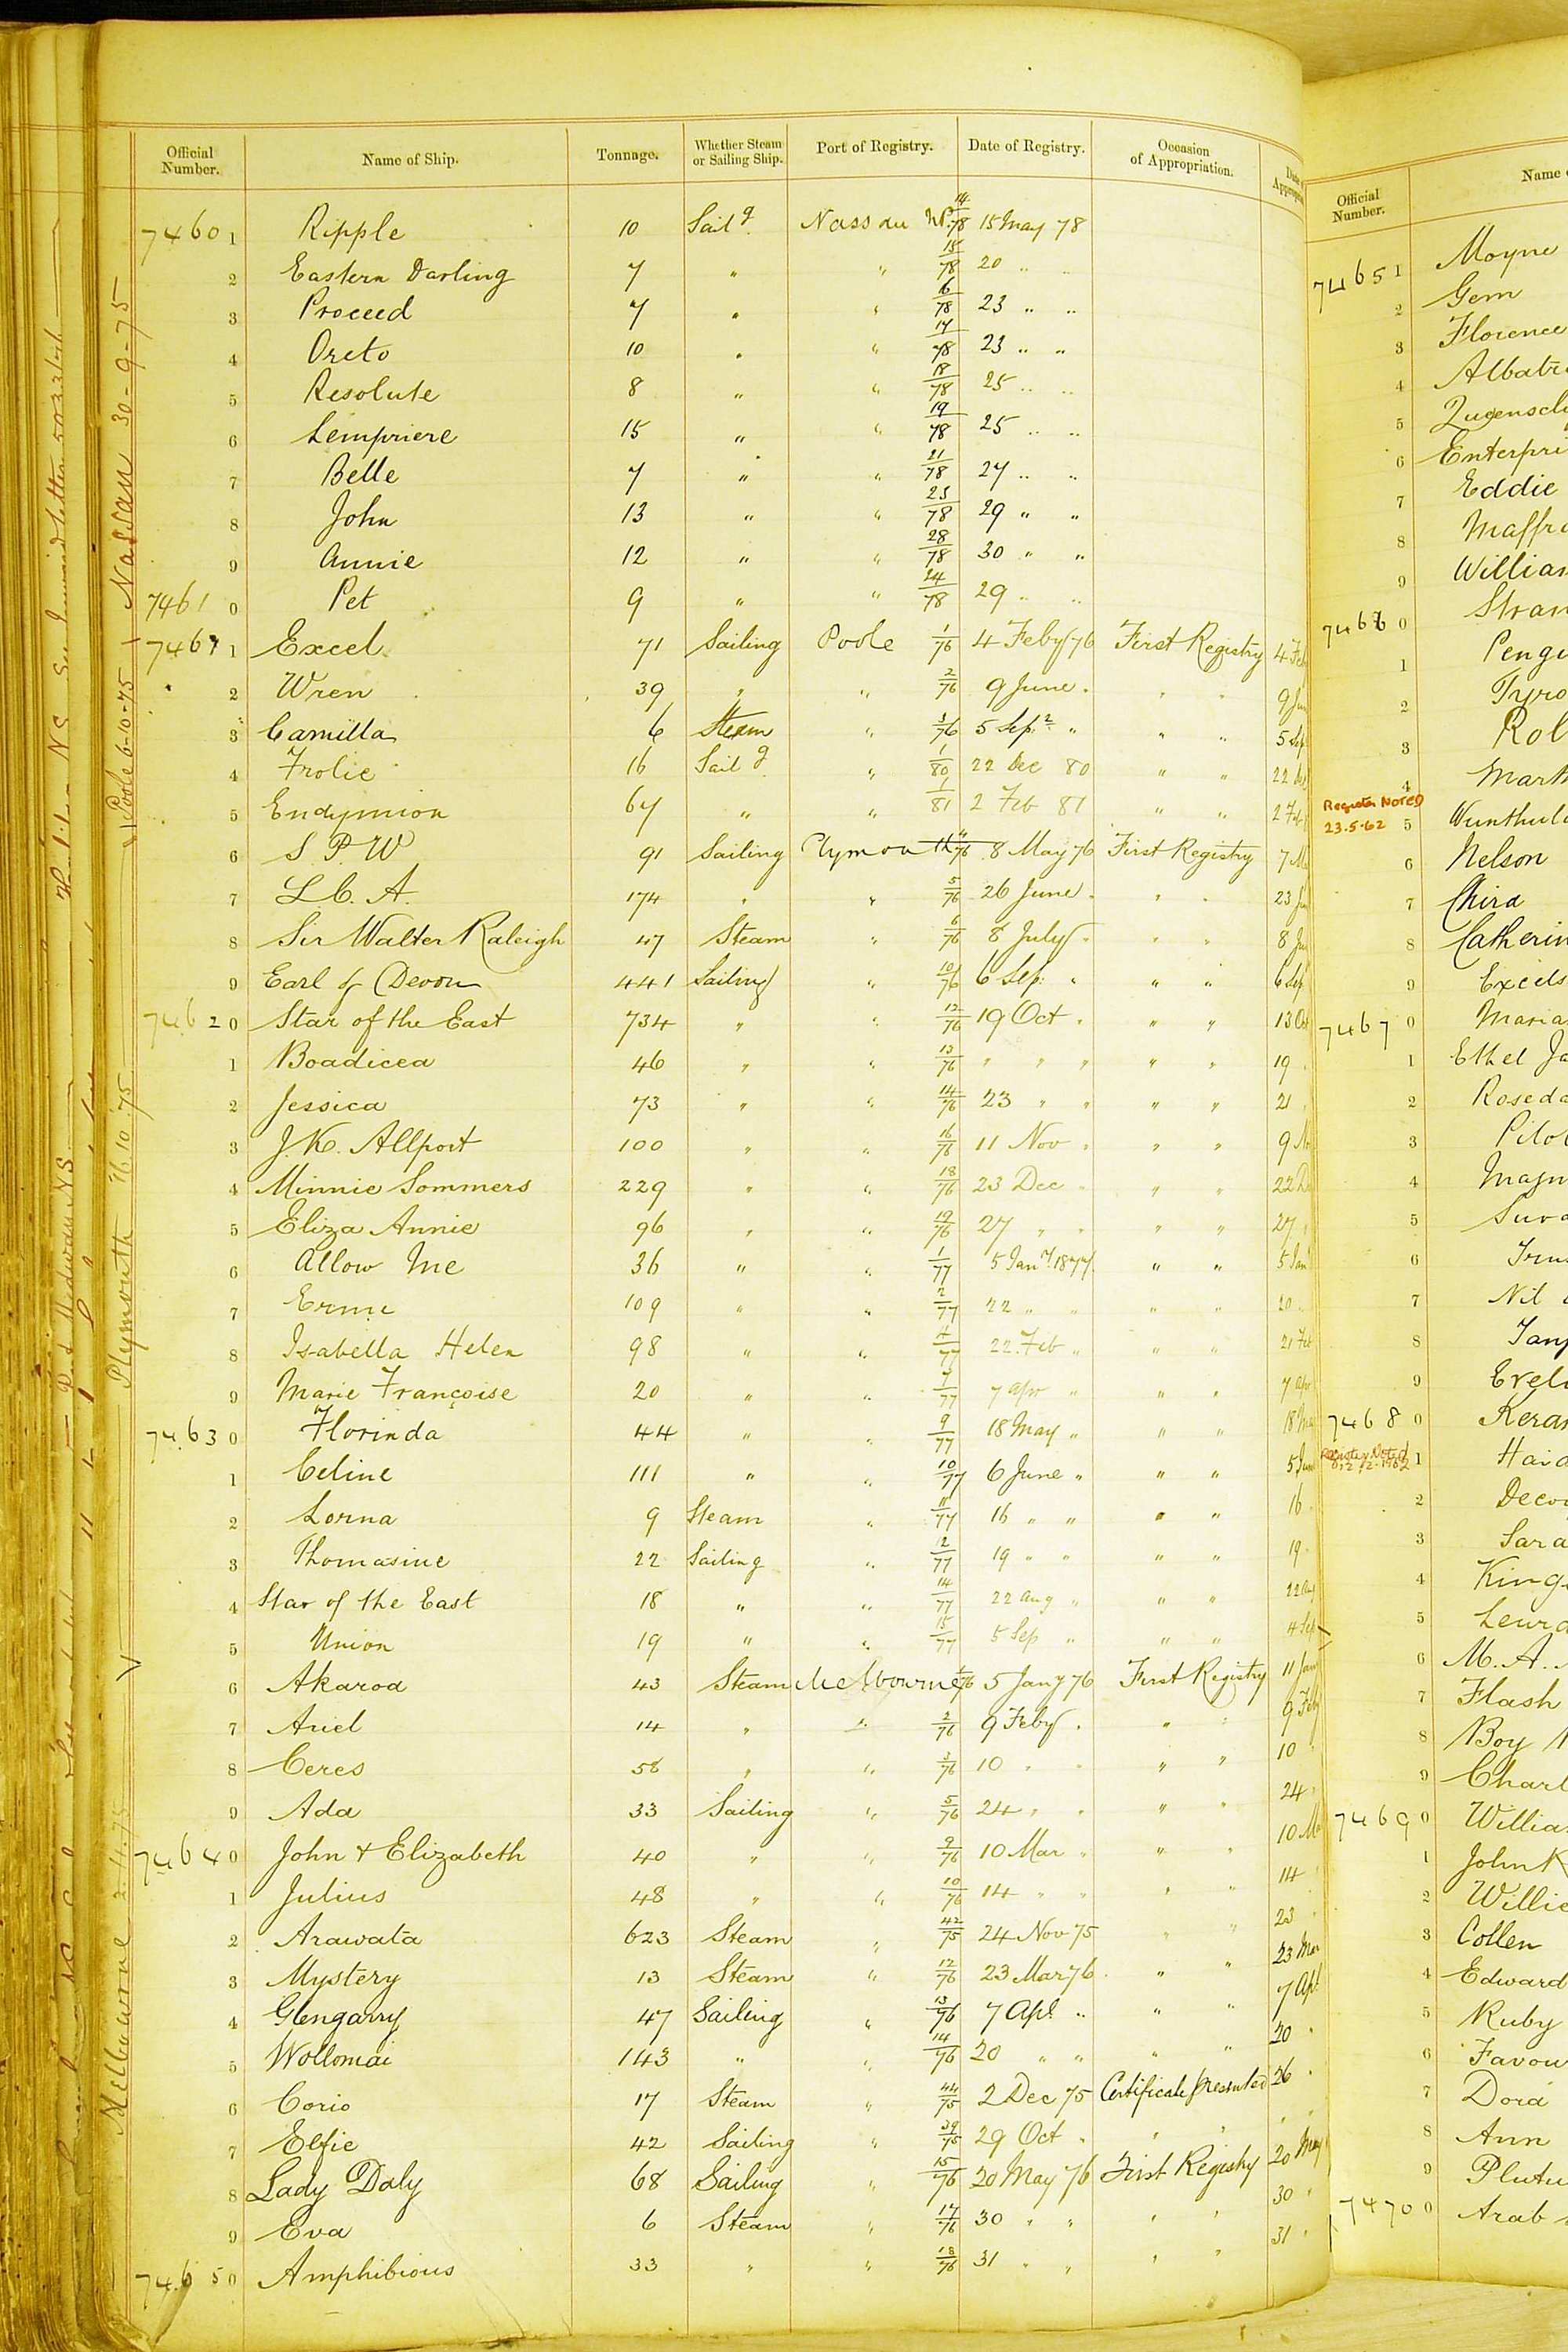 Official Number. Name of Ship. Tonnage. Whether Steam or Sailing Ship. Port of Registry. Date of Registry. Occasion of Appropriation.
7460 1 Ripple 10 Sailg Nassau N.P. 14/78 15 May 78
2 Eastern Darling 7 " " 15/78 20 " "
3 Proceed 7 " " 6/78 23 " "
4 Oreto 10 " " 17/78 23 " "
5 Resolute 8 " " 18/78 25 " "
6 Lempriere 15 " " 19/78 25 " "
7 Belle 7 " " 21/78 27 " "
8 John 13 " " 23/78 29 " "
9 Annie 12 " " 28/78 30 " "
7461 0 Pet 9 " " 24/78 29 " "
7461 1 Excel 71 Sailing Poole 1/76 4 Feby 76 First Registry 4 Feb
2 Wren 39 " " 2/76 9 June " " " 9 Jun
3 Camilla 6 Steam " 3/76 5 Sep " " " 5 Sep
4 Frolic 16 Sailg " 1/80 22 Dec 80 " " 22 Dec
5 Endymion 67 " " 1/81 2 Feb 81 " " 2 Feb
6 S P W 91 Sailing Plymouth 4/76 8 May 76 First Registry 7 Ma
7 L.C. A. 174 " " 5/76 26 June " " " 23 Ju
8 Sir Walter Raleigh 47 Steam " 6/76 8 July " " " 8 Ju
9 Earl of Devon 441 Sailing " 10/76 6 Sep " " " 6 Sep
7462 0 Star of the East 734 " " 12/76 19 Oct " " " 13 Oct
1 Boadicea 46 " " 13/76 " " " " " 19 "
2 Jessica 73 " " 14/76 23 " " " " 21 "
3 J.K. Allport 100 " " 16/76 11 Nov " " " 9 N
4 Minnie Sommers 229 " " 18/76 23 Dec " " " 22 De
5 Eliza Annie 96 " " 19/76 27 " " " " 27 "
6 Allow Me 36 " " 1/77 5 Jany 1877 " " 5 Jan
7 Erme 109 " " 2/77 22 " " " " 20 "
8 Isabella Helen 98 " " 4/77 22 Feb " " " 21 Feb
9 Marie Françoise 20 " " 7/77 7 Apr " " " 7 Apr
7463 0 Florinda 44 " " 9/77 18 May " " " 18 Ma
1 Celine 111 " " 10/77 6 June " " " 5 June
2 Lorna 9 Steam " 11/77 16 " " " " 16 "
3 Thomasine 22 Sailing " 2/77 19 " " " " 19 "
4 Star of the East 18 " " 14/77 22 Aug " " " 22 Aug
5 Union 19 " " 15/77 5 Sep " " " 4 Sep
6 Akaroa 43 Steam Melbourne 1/76 5 Jany 76 First Registry 11 Jan
7 Ariel 14 " " 2/76 9 Feby " " " 9 Feb
8 Ceres 58 " " 3/76 10 " " " " 10 "
9 Ada 33 Sailing " 5/76 24 " " " " 24 "
7464 0 John & Elizabeth 40 " " 9/76 10 Mar " " " 10 Ma
1 Julius 48 " " 10/76 14 " " " " 14 "
2 Arawata 623 Steam " 42/75 24 Nov 75 " " 23 "
3 Mystery 13 Steam " 12/76 23 Mar 76 " " 23 Mar
4 Glengarry 47 Sailing " 13/76 7 Apl " " " 7 Apl
5 Wollomai 143 " " 14/76 20 " " " " 20 "
6 Corio 17 Steam " 44/75 2 Dec 75 Certificate presented 26 "
7 Elfie 42 Sailing " 39/75 29 Oct " " " " "
8 Lady Daly 68 Sailing " 15/76 20 May 76 First Registry 20 May
9 Eva 6 Steam " 17/76 30 " " " " 30 "
7465 0 Amphibious 33 " " 18/76 31 " " " " 31 "
Nassau 30-9-75
Poole 6-10-75
Plymouth 16.10.75
Melbourne 2.11.75
Official Number. Name
7465 1 Moyne
2 Gem
3 Florence
4 Albatr
5 Queenscli
6 Enterpri
7 Eddie
8 Maffra
9 William
7466 0 Stran
1 Pengu
2 Tyro
3 Rol
4 Marth
Register Noted 23.5.62
5 Wunthul
6 Nelson
7 China
8 Catherin
9 Excels
7467 0 Maria
1 Ethel Ja
2 Roseda
3 Pilot
4 Magn
5 Suva
6
7 Nil
8
9 Evel
7468 0 Keran
Register Noted
1 Haid
2 Decoy
3 Sara
4 King
5 Leura
6 M. A.
7 Flash
8 Boy
9 Charl
7469 0 Willia
1 John K
2 Willie
3 Collen
4 Edward
5 Ruby
6 Favou
7 Dora
8 Ann
9 Pluto
7470 0 Arab